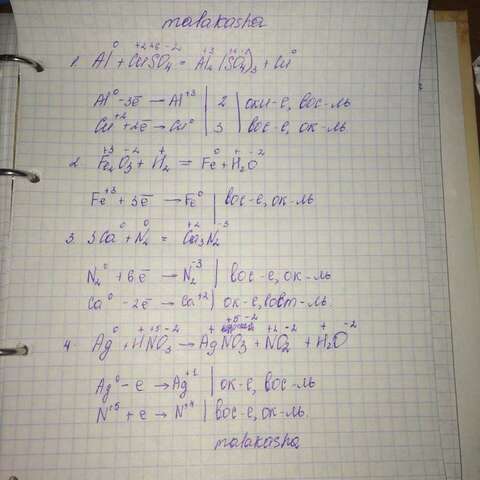 malakasha
1. Al⁰ + Cu⁺²S⁺⁶O₄⁻² = Al₂⁺³(SO₄)₃ + Cu⁰
Al⁰ - 3ē → Al⁺³ | 2 | оки-е, вос-ль
Cu⁺² + 2ē → Cu⁰ | 3 | вос-е, ок-ль.
2. Fe₂⁺³O₃⁻² + H₂⁺ = Fe⁰ + H₂⁺O⁻²
Fe⁺³ + 3ē → Fe⁰ | вос-е, ок-ль
3. 3Ca⁰ + N₂⁰ = Ca₃⁺²N₂⁻³
N₂⁰ + 6ē → N₂⁻³ | вос-е, ок-ль
Ca⁰ - 2ē → Ca⁺² | ок-е, вост-ль.
4. Ag⁰ + H⁺N⁺⁵O₃⁻² → Ag⁺N⁺⁵O₃⁻² + N⁺⁴O₂⁻² + H₂⁺O⁻²
Ag⁰ - e → Ag⁺¹ | ок-е, вос-ль
N⁺⁵ + e → N⁺⁴ | вос-е, ок-ль.
malakasha